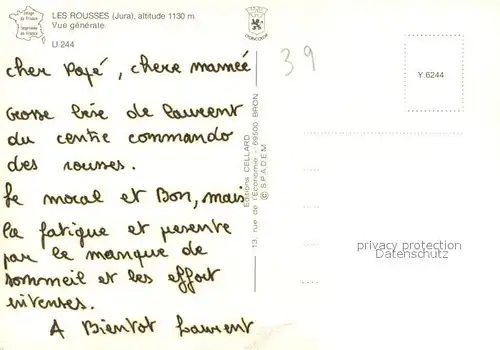 Image de France
Imprimée en France
LES ROUSSES (Jura), altitude 1130 m.
Vue générale
U 244
LYONCOLOR
39
Y. 6244
cher Papé, chere mamée
Grosse bise de Laurent
du centre commando
des rousses.
Le moral et Bon, mais
la fatigue et présente
par le manque de
sommeil et les effort
intenses.
A Bientot Laurent
Editions CELLARD
13, rue de l'Economie - 69500 BRON
© S.P.A.D.E.M.
privacy protection
Datenschutz